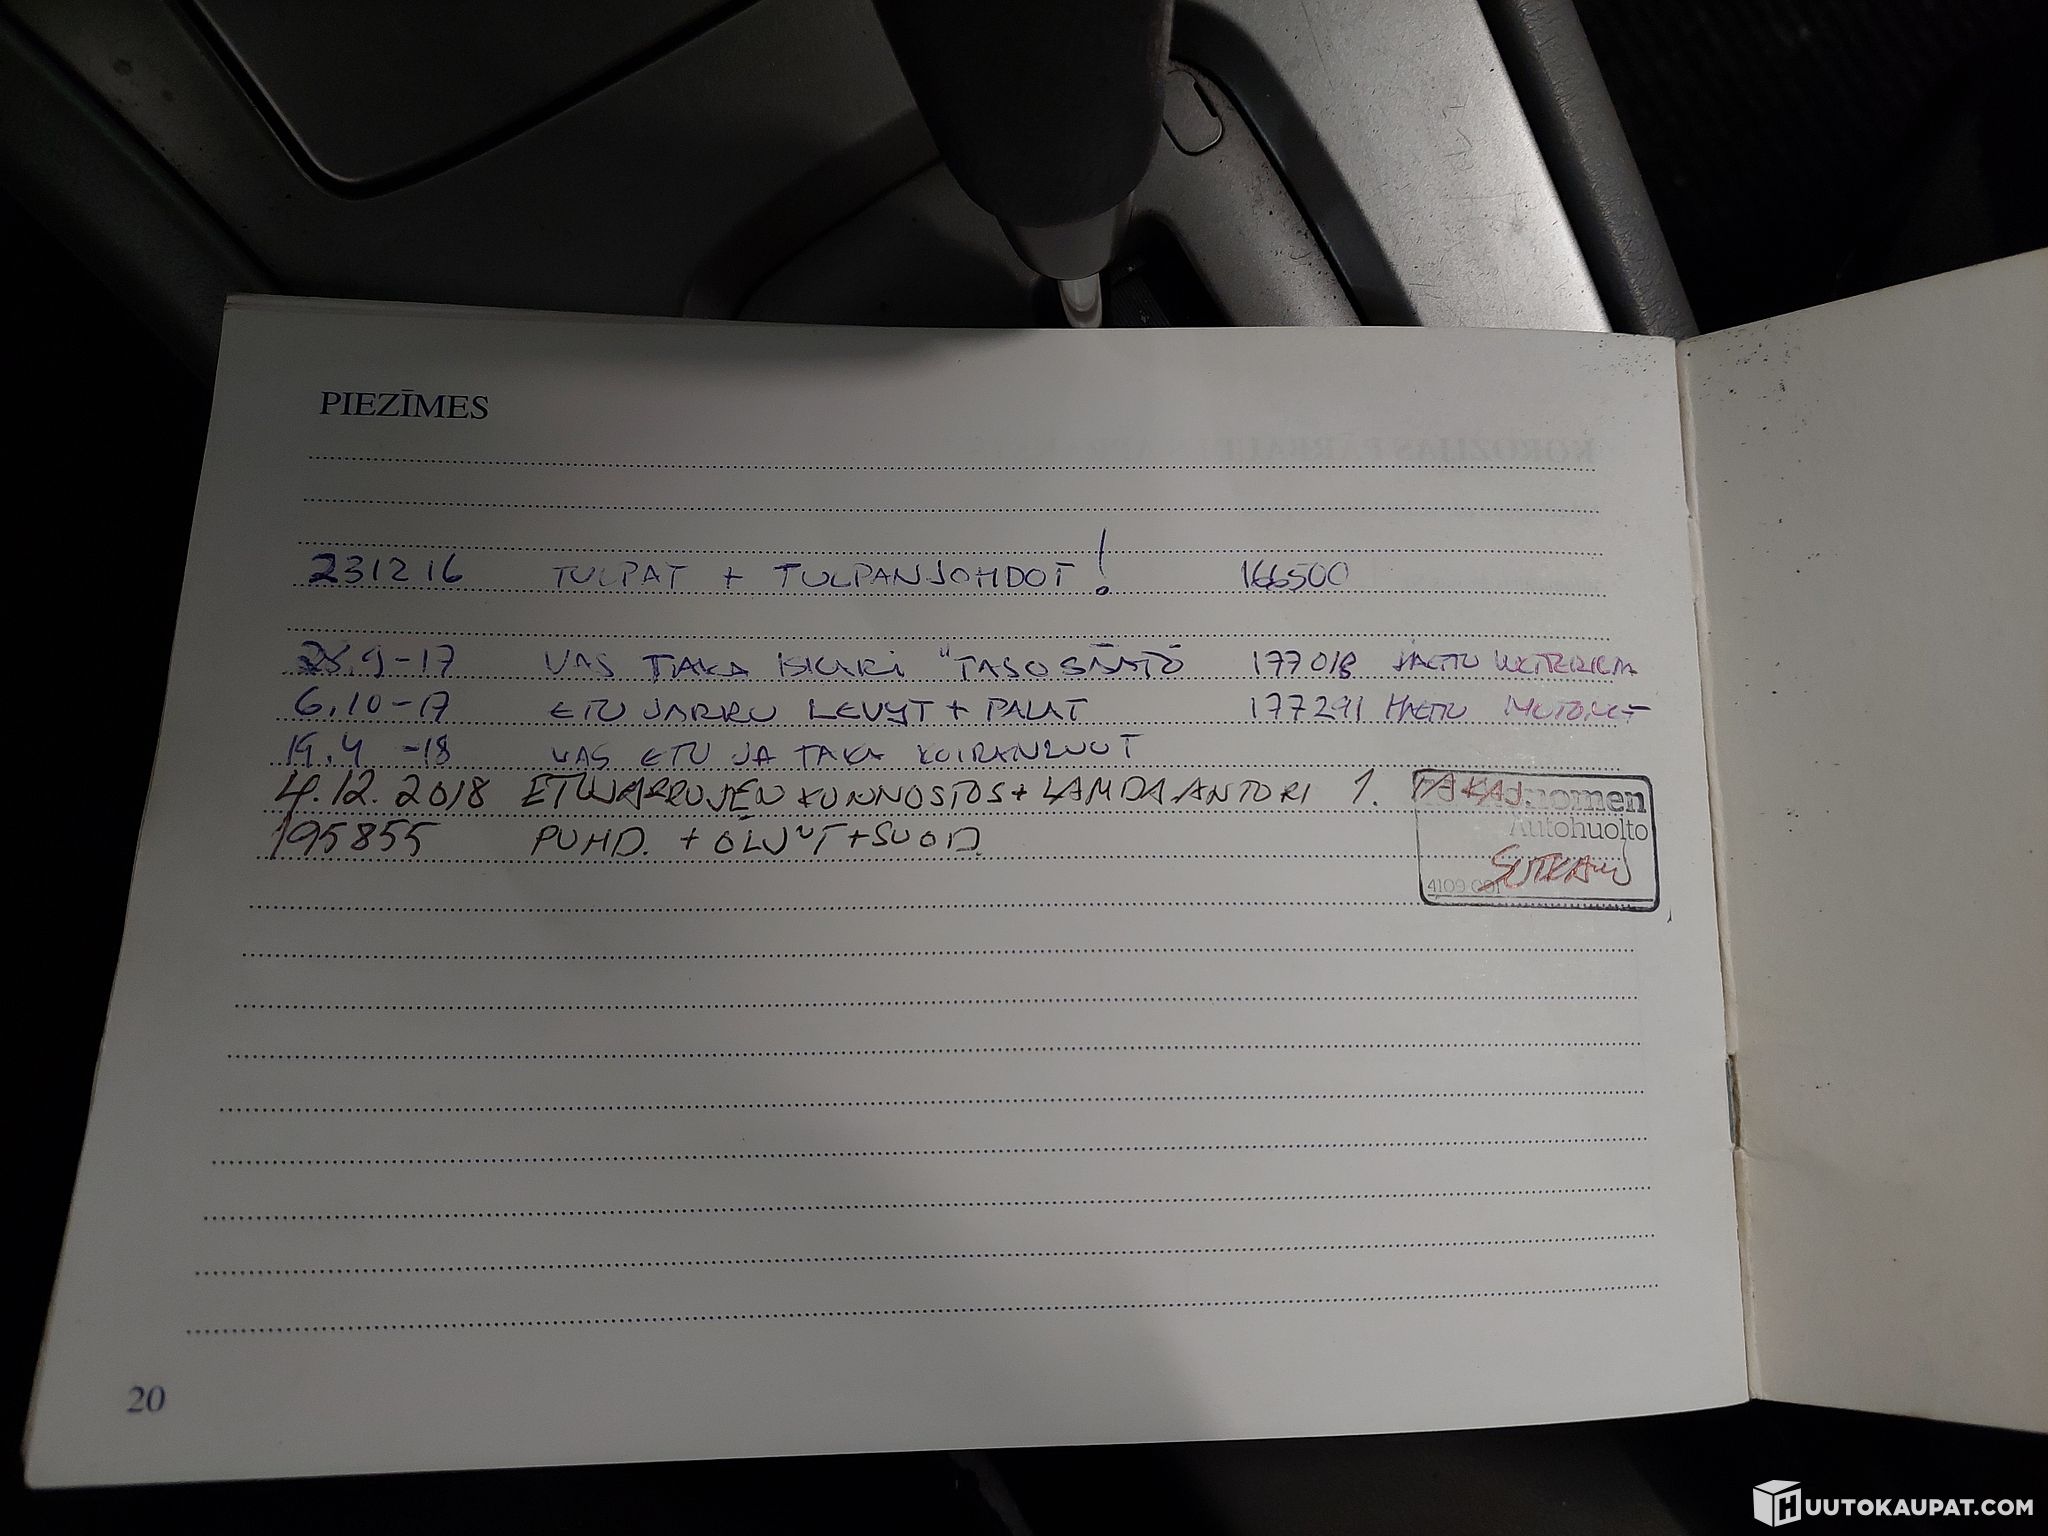 PIEZĪMES
231216 TULPAT + TULPANJOHDOT! 166500
28.9-17 VAS TAKA ISKARI "TASOSÄÄTÖ 177018 HAETTU
6.10-17 ETU JARRU LEVYT + PALAT 177291 HAETTU MOTONET
19.4 -18 VAS ETU JA TAKA KOIRANLUUT
4.12.2018 ETUJARRUJEN KUNNOSTUS + LAMDA ANTURI 1. TAKAJ.
195855 PUHD. + ÖLJYT + SUOD.
Autohuolto
SOTKAMO
4109 001
20
HUUTOKAUPAT.COM